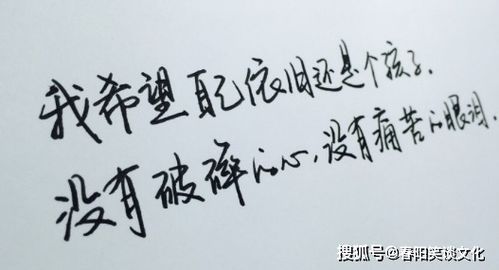 我希望自己依旧还是个孩子.
没有破碎的心,没有痛苦的眼泪.
搜狐号@春阳笑谈文化